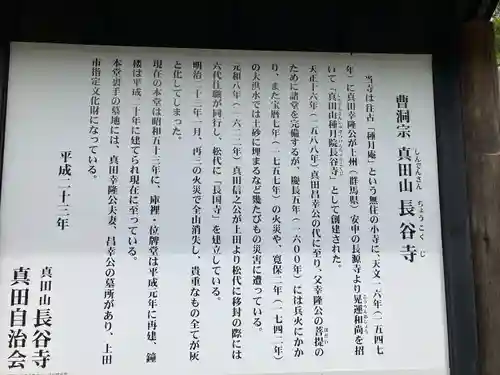 曹洞宗 真田山 長谷寺
しんでんさん ちょうこくじ
当寺は往古「種月庵」という無住の小寺に、天文一六年(一五四七
年)に真田幸隆公が上州(群馬県)安中の長源寺より晃運和尚を招
いて『真田山種月院長谷寺』として創建された。
天正十六年(一五八八年)真田昌幸公の代に至り、父幸隆公の菩提の
ために諸堂を完備するが、慶長五年(一六〇〇年)には兵火にかか
り、また宝暦七年(一七五七年)の火災や、寛保二年(一七四二年)
の大洪水では土砂に埋まるなど幾たびもの災害に遭っている。
元和八年(一六二二年)真田信之公が上田より松代に移封の際には
六代住職が同行し、松代に「長国寺」を建立している。
明治二十三年一月、再三の火災で全山消失し、貴重なもの全てが灰
と化してしまった。
現在の本堂は昭和五十三年に、庫裡・位牌堂は平成元年に再建、鐘
楼は平成二十年に建てられ現在に至っている。
本堂裏手の墓地には、真田幸隆公夫妻、昌幸公の墓所があり、上田
市指定文化財になっている。
平成二十三年
真田山 長谷寺
真田自治会